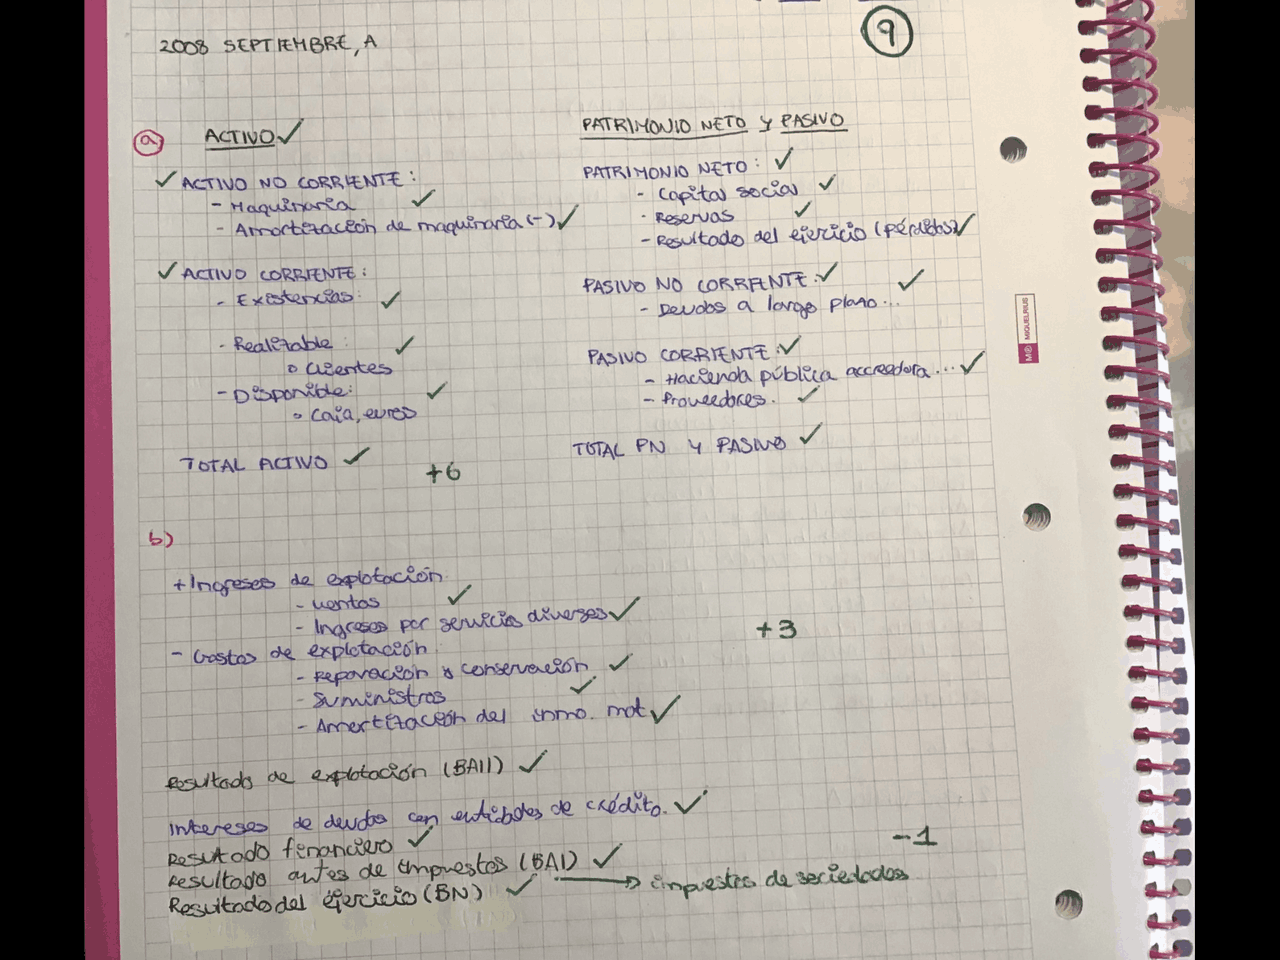 2008 SEPTIEMBRE, A
9
a) ACTIVO ✓
✓ ACTIVO NO CORRIENTE:
- Maquinaria ✓
- Amortización de maquinaria (-) ✓
✓ ACTIVO CORRIENTE:
- Existencias: ✓
- Realizable: ✓
o Clientes
- Disponible: ✓
o Caja, euros
TOTAL ACTIVO ✓
+6
PATRIMONIO NETO y PASIVO
PATRIMONIO NETO: ✓
- Capital social ✓
- Reservas ✓
- Resultado del ejercicio (pérdidas) ✓
PASIVO NO CORRIENTE: ✓
- Deudas a largo plazo... ✓
PASIVO CORRIENTE: ✓
- Hacienda pública acreedora... ✓
- Proveedores. ✓
TOTAL PN Y PASIVO ✓
MIQUELRIUS
b)
+ Ingresos de explotación
- Ventas ✓
- Ingresos por servicios diversos ✓
+3
- Gastos de explotación
- Reparación y conservación ✓
- Suministros ✓
- Amortización del inmo. mat ✓
Resultado de explotación (BAII) ✓
Intereses de deudas con entidades de crédito. ✓
Resultado financiero ✓
-1
Resultado antes de impuestos (BAI) ✓
→ impuestos de sociedades
Resultado del ejercicio (BN) ✓